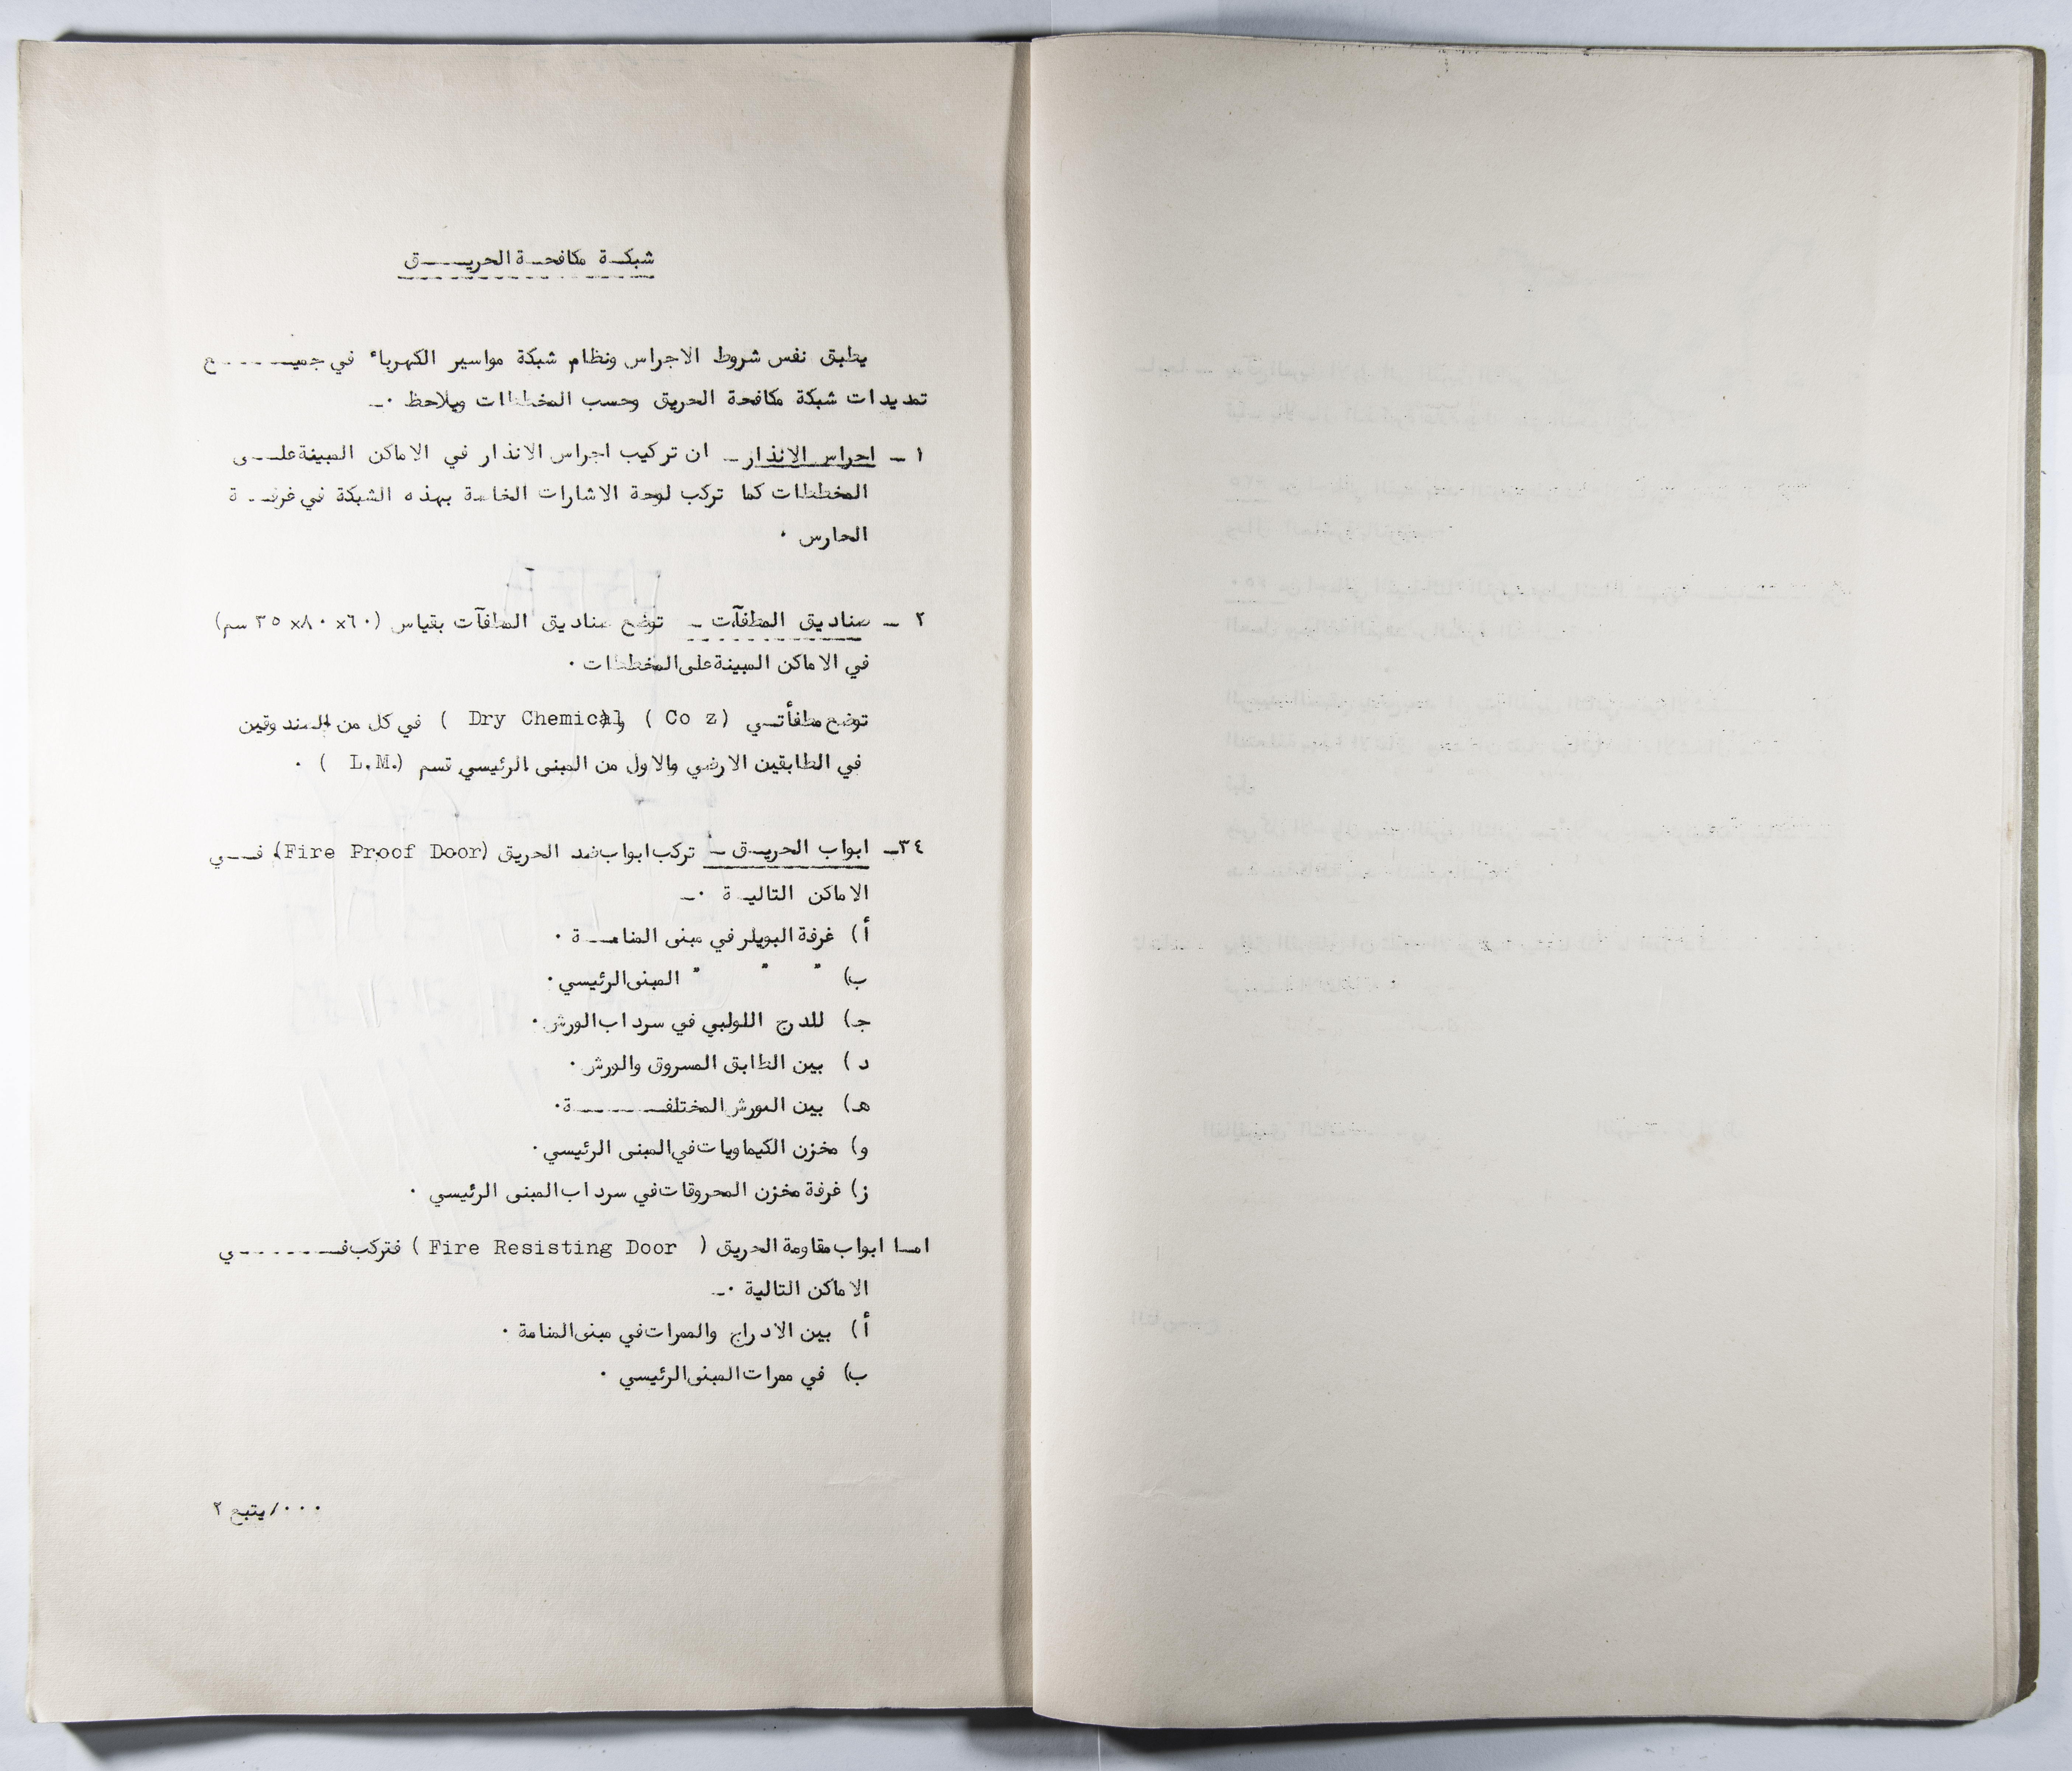 شبكة مكافحة الحريق
يطبق نفس شروط الاجراس ونظام شبكة مواسير الكهرباء في جميع
تمديدات شبكة مكافحة الحريق وحسب المخططات ويلاحظ .-
١ - اجراس الانذار - ان تركيب اجراس الانذار في الاماكن المبينة على
المخططات كما تركب لوحة الاشارات الخاصة بهذه الشبكة في غرفة
الحارس .
٢ - صناديق المطفآت - توضع صناديق المطفآت بقياس (٦٠×٨٠×٣٥ سم)
في الاماكن المبينة على المخططات .
توضع مطفأتي (Co z) و (Dry Chemical) في كل من الصندوقين
في الطابقين الارضي والاول من المبنى الرئيسي قسم (L.M.) .
٣٤- ابواب الحريق - تركب ابواب ضد الحريق (Fire Proof Door) في
الاماكن التالية .-
أ) غرفة البويلر في مبنى المنامة .
ب) " " " المبنى الرئيسي .
جـ) للدرج اللولبي في سرداب الورش .
د) بين الطابق المسروق والورش .
هـ) بين الورش المختلفة .
و) مخزن الكيماويات في المبنى الرئيسي .
ز) غرفة مخزن المحروقات في سرداب المبنى الرئيسي .
اما ابواب مقاومة الحريق (Fire Resisting Door) فتركب في
الاماكن التالية .-
أ) بين الادراج والممرات في مبنى المنامة .
ب) في ممرات المبنى الرئيسي .
٠٠٠/يتبع ٢